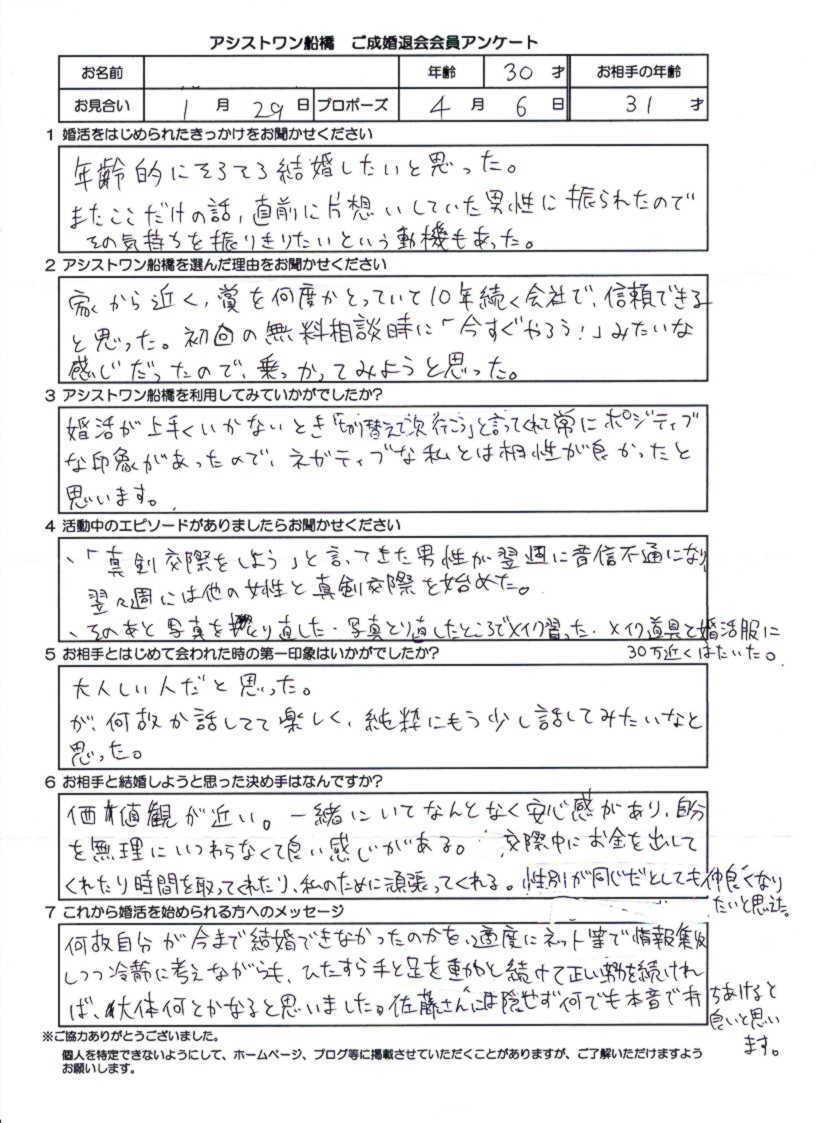 アシストワン船橋 ご成婚退会会員アンケート
お名前 年齢 30 才 お相手の年齢
お見合い 1 月 29 日 プロポーズ 4 月 6 日 31 才
1 婚活をはじめられたきっかけをお聞かせください
年齢的にそろそろ結婚したいと思った。
またここだけの話、直前に片想いしていた男性に振られたので
その気持ちを振りきりたいという動機もあった。
2 アシストワン船橋を選んだ理由をお聞かせください
家から近く、賞を何度かとっていて10年続く会社で、信頼できる
と思った。初回の無料相談時に「今すぐやろう!」みたいな
感じだったので、乗っかってみようと思った。
3 アシストワン船橋を利用してみていかがでしたか?
婚活が上手くいかないとき「切り替えて次行こう」と言ってくれて常にポジティブ
な印象があったので、ネガティブな私とは相性が良かったと
思います。
4 活動中のエピソードがありましたらお聞かせください
、「真剣交際をしよう」と言ってきた男性が翌週に音信不通になり
翌々週には他の女性と真剣交際を始めた。
、そのあと写真をとり直した・写真とり直したところでメイク習った・メイク道具と婚活服に
30万近くはたいた。
5 お相手とはじめて会われた時の第一印象はいかがでしたか?
大人しい人だと思った。
が、何故か話してて楽しく、純粋にもう少し話してみたいなと
思った。
6 お相手と結婚しようと思った決め手はなんですか?
価値観が近い。一緒にいてなんとなく安心感があり、自分
を無理にいつわらなくて良い感じがある。交際中にお金を出して
くれたり時間を取ってくれたり、私のために頑張ってくれる。性別が同じだとしても仲良くなり
たいと思えた。
7 これから婚活を始められる方へのメッセージ
何故自分が今まで結婚できなかったのかを、適度にネット等で情報集収
しつつ冷静に考えながらも、ひたすら手と足を動かし続けて正しい動を続けれ
ば、大体何とかなると思いました。佐藤さんには隠せず何でも本音で打ちあけると
良いと思い
ます。
※ご協力ありがとうございました。
個人を特定できないようにして、ホームページ、ブログ等に掲載させていただくことがありますが、ご了解いただけますよう
お願いします。